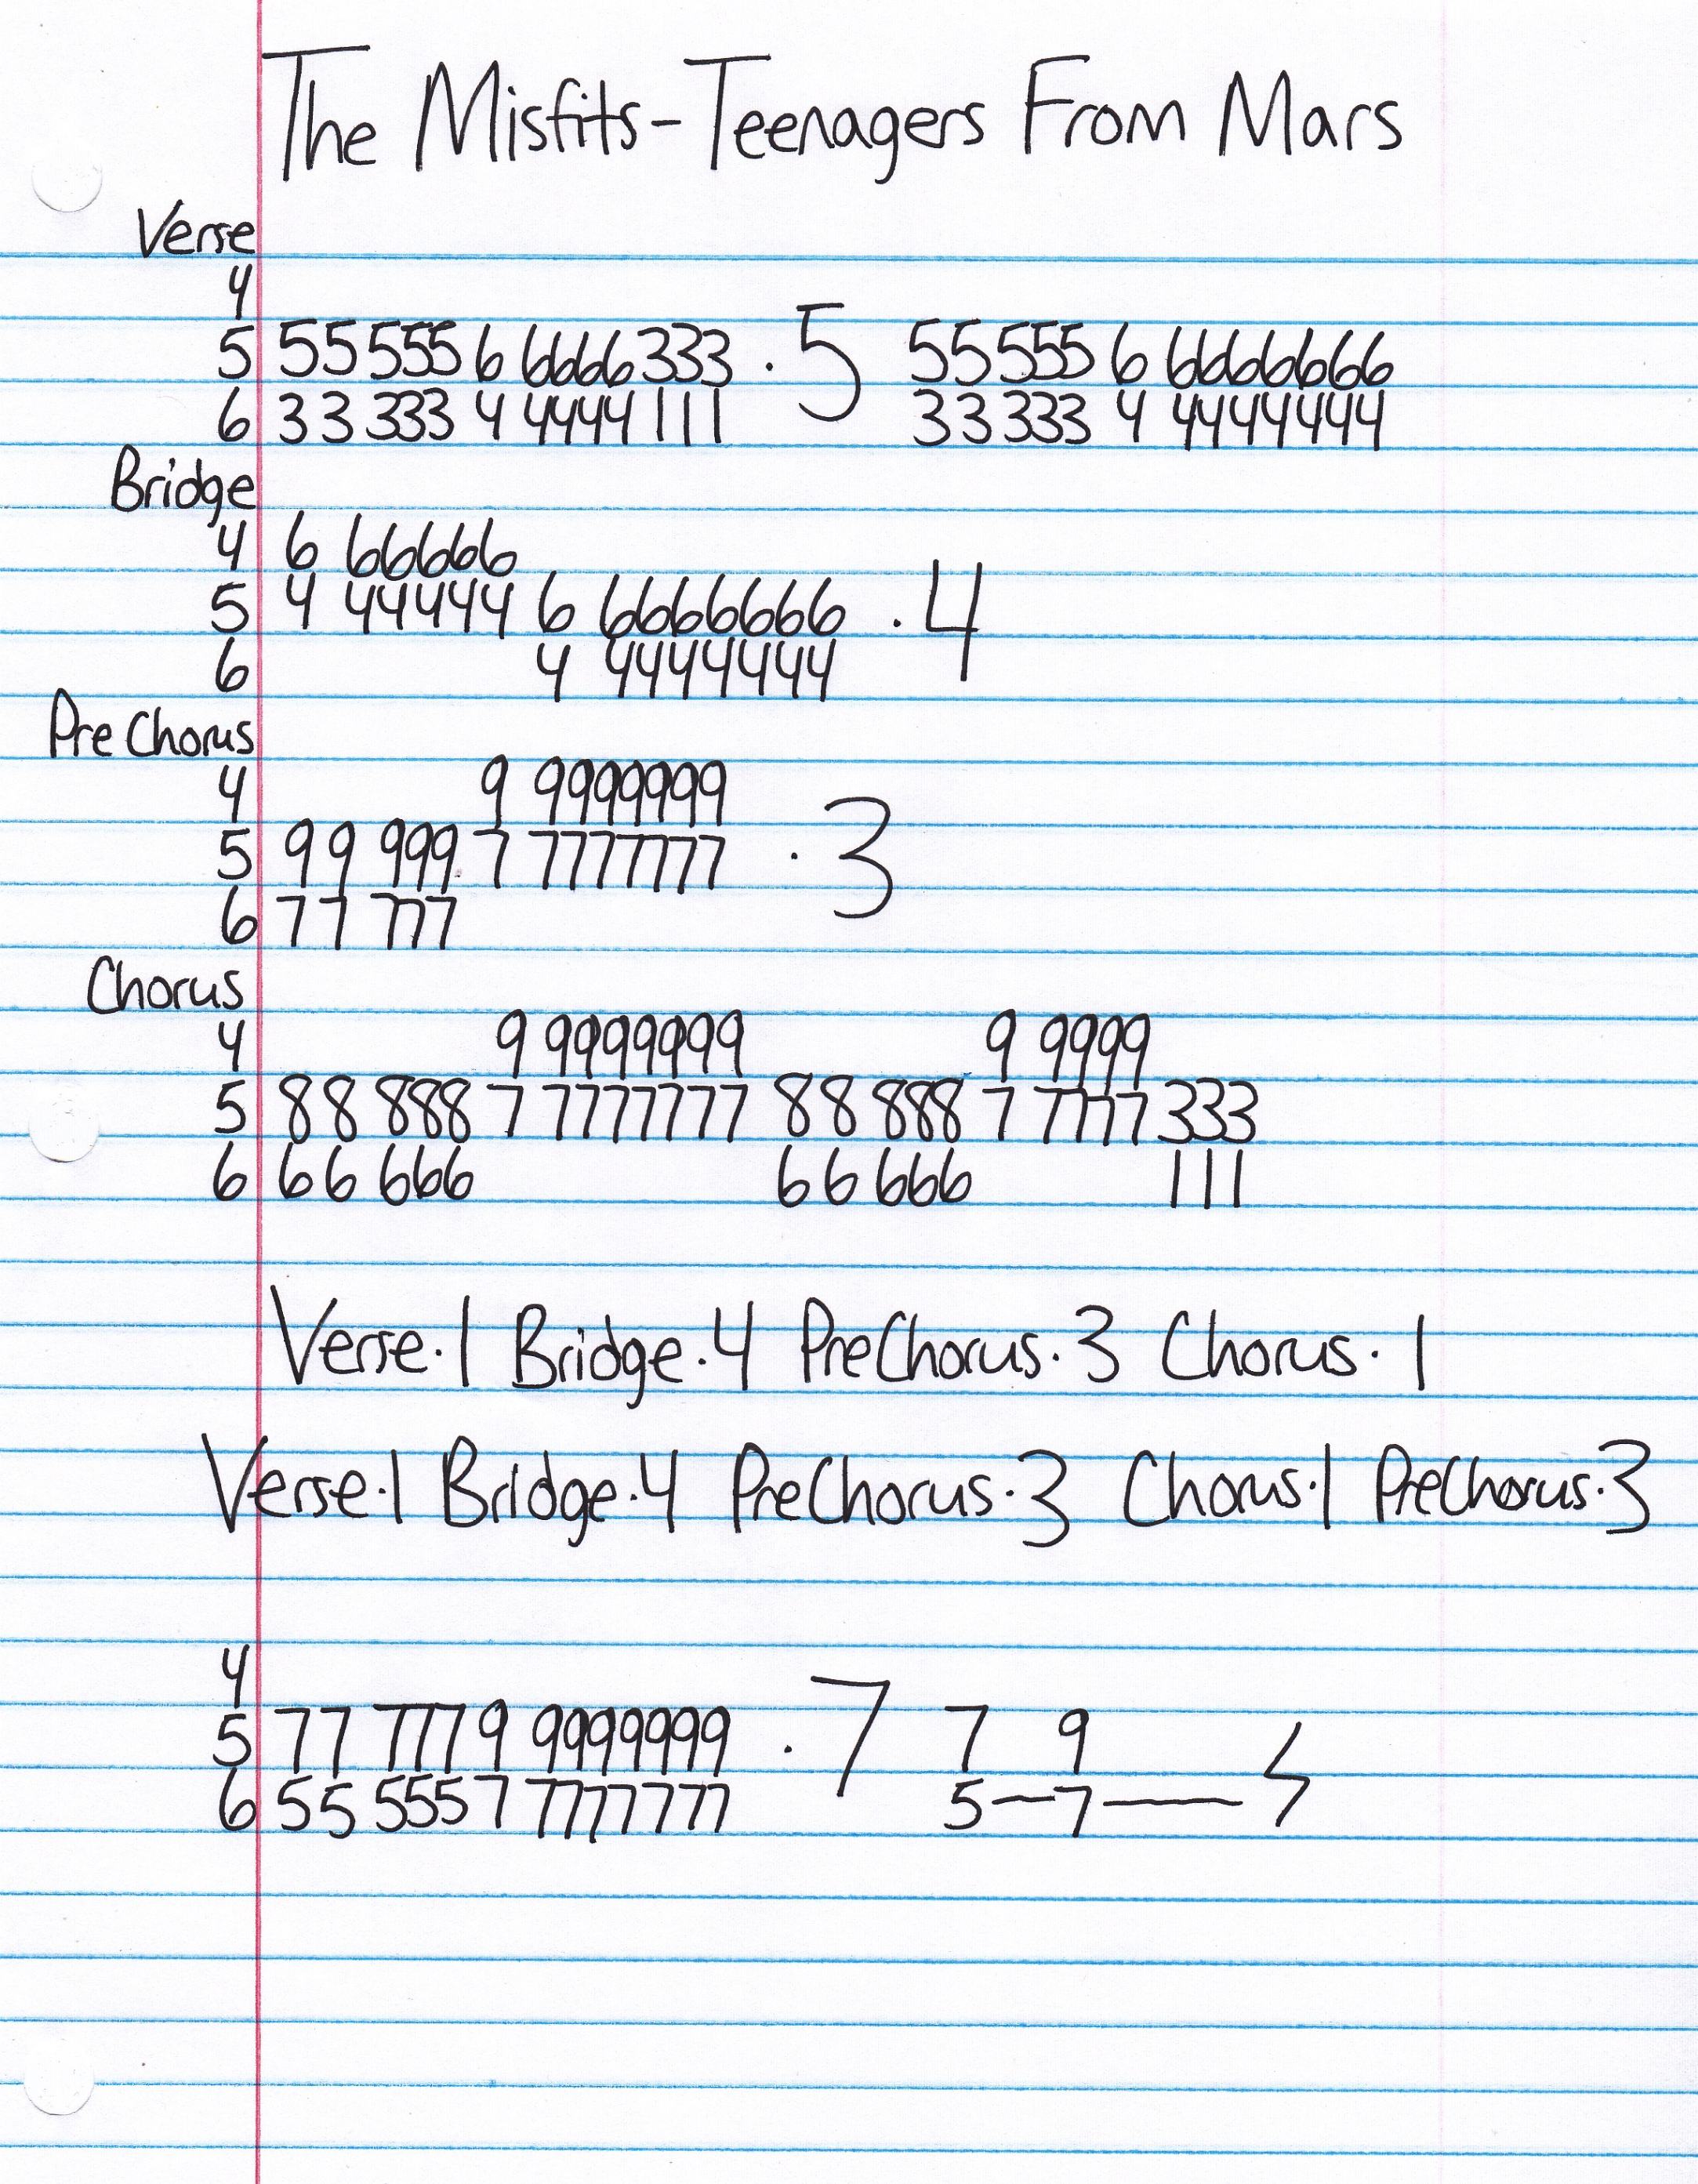 The Misfits-Teenagers From Mars
Verse
4
5 55 555 6 6666 333 . 5 55 555 6 6666666
6 33 333 4 4444 111 33 333 4 4444444
Bridge
4 6 66666
5 4 44444 6 6666666 . 4
6 4 4444444
Pre Chorus
4 9 9999999
5 99 999 7 7777777 . 3
6 77 777
Chorus
4 9 9999999 9 9999
5 88 888 7 7777777 88 888 7 7777 333
6 66 666 66 666 111
Verse·1 Bridge·4 PreChorus·3 Chorus·1
Verse·1 Bridge·4 PreChorus·3 Chorus·1 PreChorus·3
4
5 77 777 9 9999999 . 7 7 9
6 55 555 7 7777777 5—7——